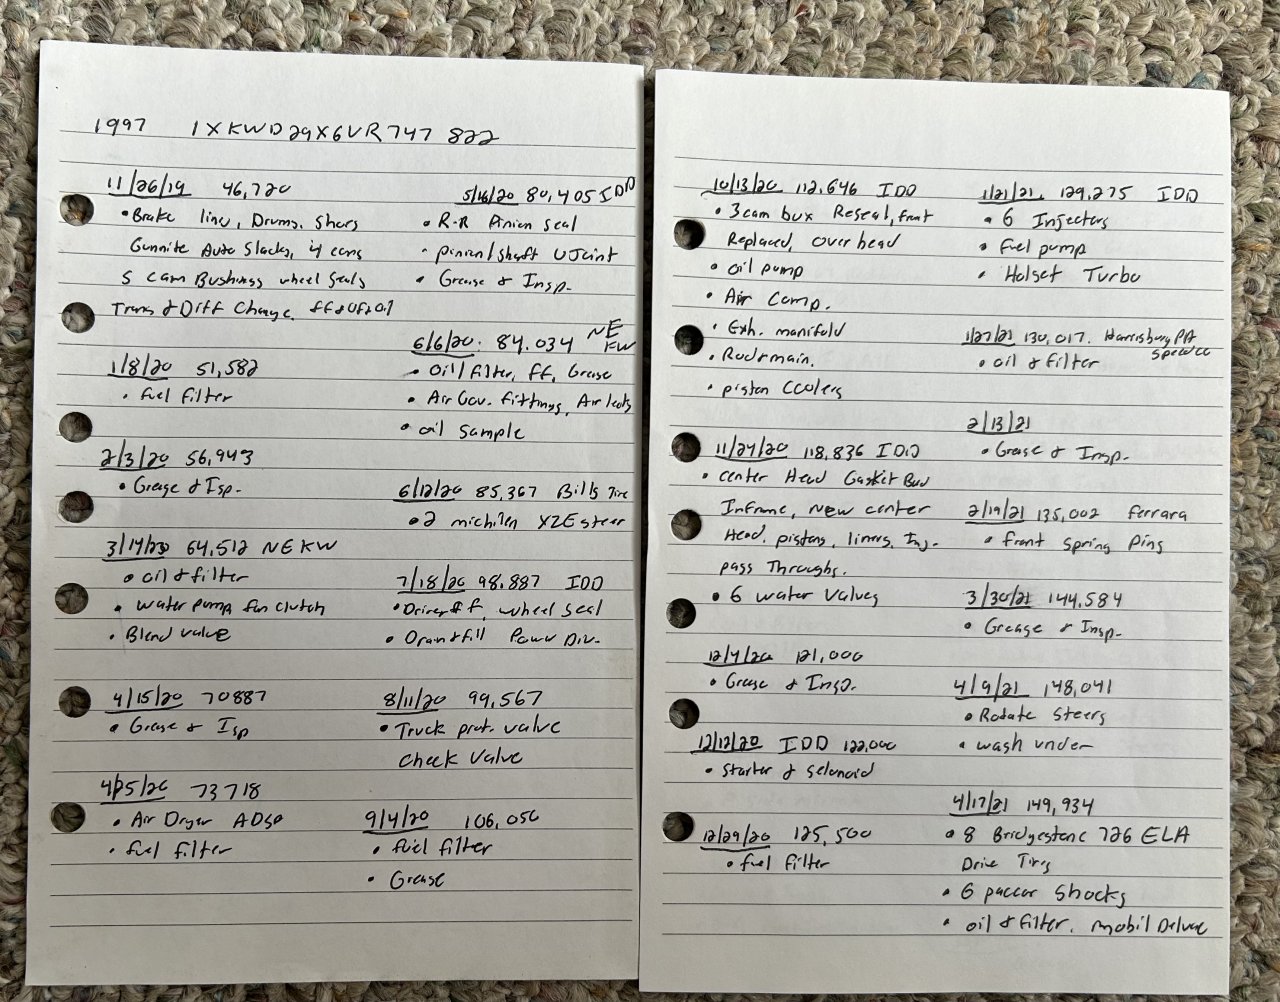 1997 1XKWD29X6VR747 822
11/26/19 46,720
• Brake line, Drums, Shoes
Gunnite Auto Slacks, 4 cans
S cam Bushings wheel seals
Trans & Diff Change,
1/8/20 51,582
• fuel filter
2/3/20 56,943
• Grease & Isp.
3/14/20 64,512 NEKW
• oil & filter
• water pump fan clutch
• Blend valve
4/15/20 70887
• Grease & Isp
4/25/20 73718
• Air Dryer
• fuel filter
5/16/20 80,405 IDD
• R-R Pinion seal
• pinion/shaft UJoint
• Grease & Insp.
6/6/20. 84.034 NE KW
• Oil/filter, ff, Grease
• Air Gov. fittings, Air leaks
• oil sample
6/12/20 85,367 Bills Tire
• 2 michilen XZE steer
7/18/20 98,887 IDD
• Driver ff, wheel seal
• Drain & fill Power Div.
8/11/20 99,567
• Truck prot. valve
check valve
9/4/20 106,050
• fuel filter
• Grease
10/13/20 112,646 IDD
• 3 cam box Reseal, front
Replaced, over head
• oil pump
• Air Comp.
• Exh. manifold
• Rod & main.
• piston Coolers
11/24/20 118,836 IDD
• center Head Gasket Bad
Inframe, New center
Head, pistons, liners, Inj.
pass Throughs.
• 6 water valves
12/4/20 121,000
• Grease & Insp.
12/12/20 IDD 122,000
• starter & selonoid
12/29/20 125,500
• fuel filter
1/21/21. 129,275 IDD
• 6 Injectors
• fuel pump
• Holset Turbo
1/27/21 130,017. Harrisburg PA
Speedco
• oil & filter
2/13/21
• Grease & Insp.
2/19/21 135,002 Ferrara
• front spring Pins
3/30/21 144,584
• Grease & Insp.
4/9/21 148,041
• Rotate Steers
• wash under
4/17/21 149,934
• 8 Bridgestone 726 ELA
Drive Tires
• 6 paccar shocks
• oil & filter. mobil Delvac